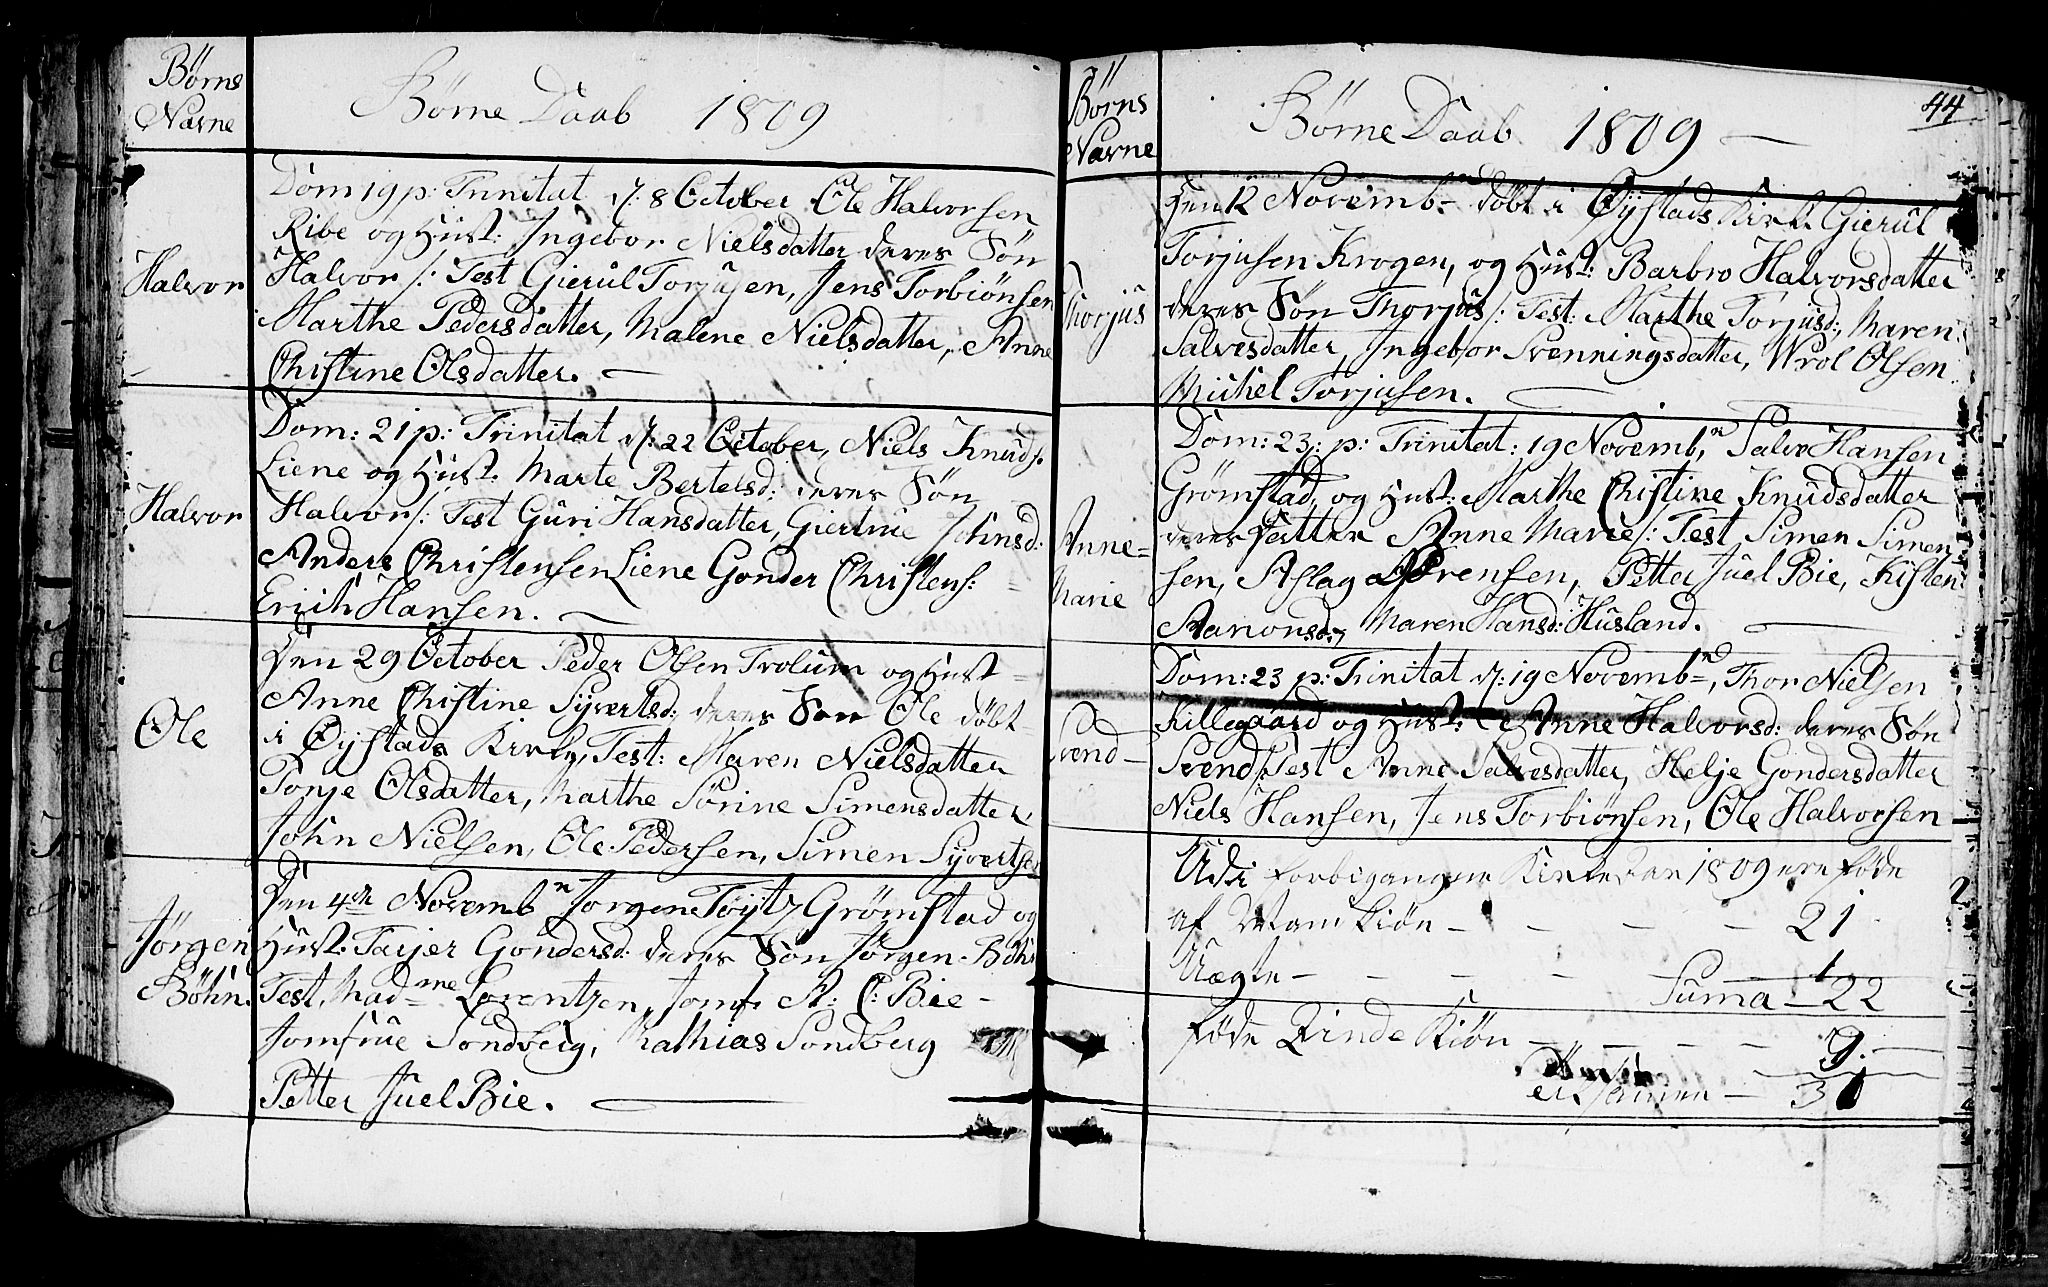 Børns
Navne
Børne Daab 1809
Halvor
Dom 19 p: Trinitat d: 8 October Ole Halvorsen
Ribe og Hust: Ingebor Nielsdatter deres Søn
Halvor /: Test Gierul Torjusen, Jens Torbiönsen
Marthe Pedersdatter, Malene Nielsdatter, Anne
Christine Olsdatter. —
Halvor
Dom: 21 p: Trinitat d: 22 October, Niels Knuds:
Liene og Hust. Marte Bertelsd: deres Søn
Halvor /: Test Guri Hansdatter, Giertrue Johnsd:
Anders Christensen Liene Gonder Christens:
Erich Hansen. —
Ole
Den 29 October Peder Olsen Trolum og Hust
Anne Christine Syvertsd: deres Søn Ole döbt
i Øyestads Kirke, Test: Maren Nielsdatter
Tonje Olsdatter, Marthe Sørine Simensdatter,
John Nielsen, Ole Pedersen, Simen Syvertsen
Jørgen
Böhn.
Den 4de Novembr Jorgen Töytz Grömstad og
Hust: Tarjer Gondersd: deres Søn Jørgen Böhn
Test, Madme Lorentzen, Jomf. A: C: Bie -
Jomfrue Sondberg, Mathias Sondberg
Petter Juel Bie. —
44
Børns
Navne
Børne Daab 1809 —
Thorjus
Den 12 Novembr döbt i Øyestads Kirk. Gierul
Torjusen Krogen, og Hust: Barbro Halvorsdatter
deres Søn Thorjus /: Test: Marthe Torjusd:, Maren
Salvesdatter, Ingebor Svenningsdatter, Wrol Olsen
Michel Torjusen. —
Anne=
Marie
Dom: 23: p: Trinitat: 19 Novembr, Salve Hansen
Grömstad, og Hust: Marthe Christine Knudsdatter
deres Datter Anne Marie /: Test, Simen Simen
sen, Aslag Sörensen, Petter Juel Bie, Kisten
Aanonsd:, Maren Hansd: Husland. —
Svend —
Dom: 23 p: Trinitat d: 19 Novembr, Thor Nielsen
Killegaard og Hust: Anne Halvorsd: deres Søn
Svend /: Test Anne Salvesdatter, Helje Gondersdatter
Niels Hansen, Jens Torbiönsen, Ole Halvorsen
Udi forbigangen Kirke Aar 1809 ere føde
af Mandkiön - - - - 21
Uægte - - - - 1
Suma — 22
føde Qvinde Kiön - - - - 9.
er sammen — 31